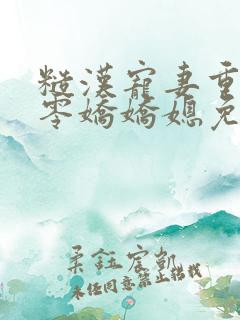 糙漢寵妻重
零嬌嬌媳免
柔鈺宸凱
未经同意禁止搭载